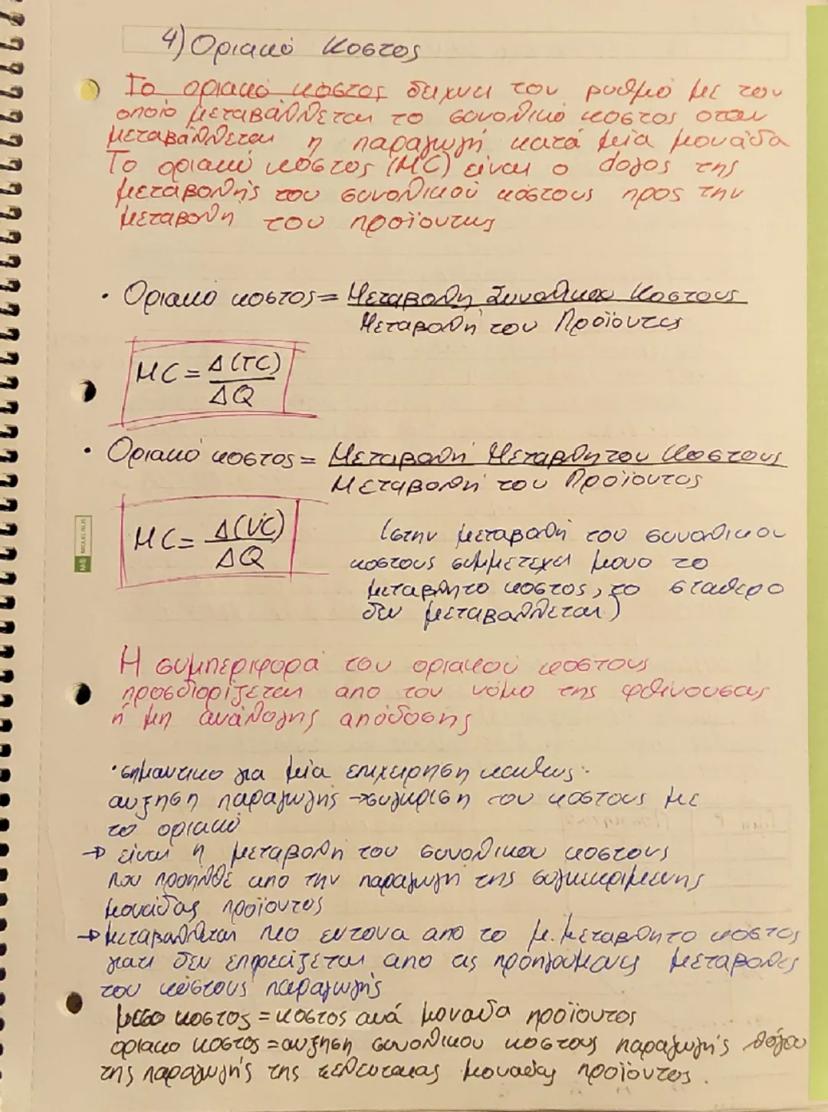 4) Οριακό Κοστος
Το οριακό κόστος δείχνει τον ρυθμό με τον
οποίο μεταβάλλεται το συνολικό κόστος οταν
μεταβάλλεται η παραγωγή κατά μία μονάδα
Το οριακό κόστος (MC) είναι ο λογος της
μεταβολής του συνολικού κόστους προς την
μεταβολη του προϊοντος
• Οριακό κοστος = Μεταβολη Συνολικου Κοστους
Μεταβολή του Προϊοντος
MC = Δ(TC)
ΔQ
• Οριακό κοστος = Μεταβολή Μεταβλητου Κοστους
Μεταβολή του Προϊοντος
MC = Δ(VC)
ΔQ
(στην μεταβολή του συνολικου
κοστους συμμετεχει μονο το
μεταβλητο κοστος, το σταθερο
δεν μεταβαλλεται)
Η συμπεριφορά του οριακού κοστους
προσδιορίζεται απο τον νόμο της φθινουσας
ή μη ανάλογης απόδοσης
• σημαντικο για μία επιχειρηση καθως·
αυξηση παραγωγής → συγκριση του κοστους με
το οριακό
→ είναι η μεταβολη του συνολικου κοστους
που προηλθε απο την παραγωγή της συγκεκριμενης
μονάδας προϊοντος
→ μεταβαλλεται πιο εντονα απο το μ. μεταβλητο κόστος
γιατι δεν επηρεάζεται απο τις προηγουμενες μεταβολες
του κόστους παραγωγής
μεσο κοστος = κοστος ανά μοναδα προϊοντος
οριακο κοστος = αυξηση συνολικου κοστους παραγωγής λόγω
της παραγωγής της τελευταιας μοναδας προϊοντος.